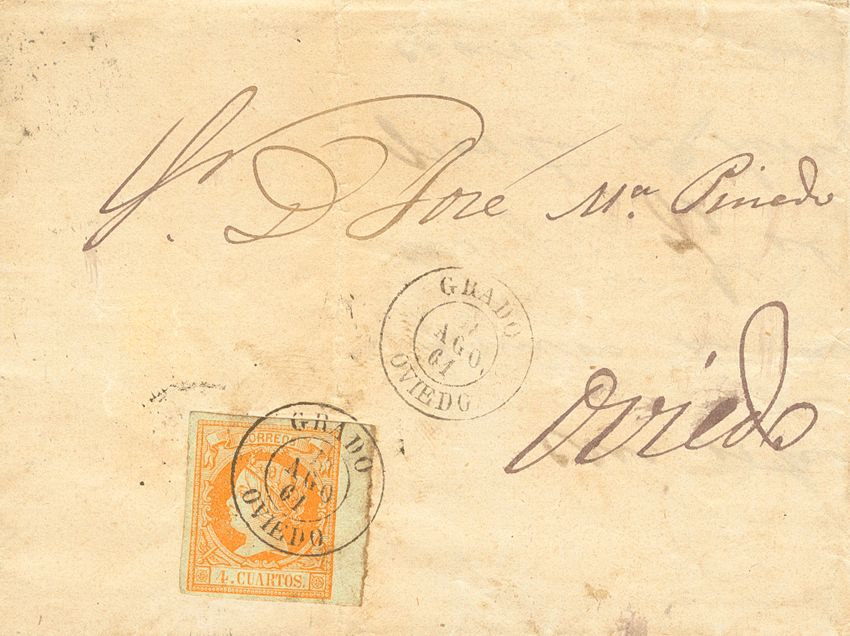 Sr. D José Mª Pinedo
GRADO
2
AGO.
61
OVIEDO.
Oviedo
CORREOS
GRADO
2
AGO
61
OVIEDO
4. CUARTOS.